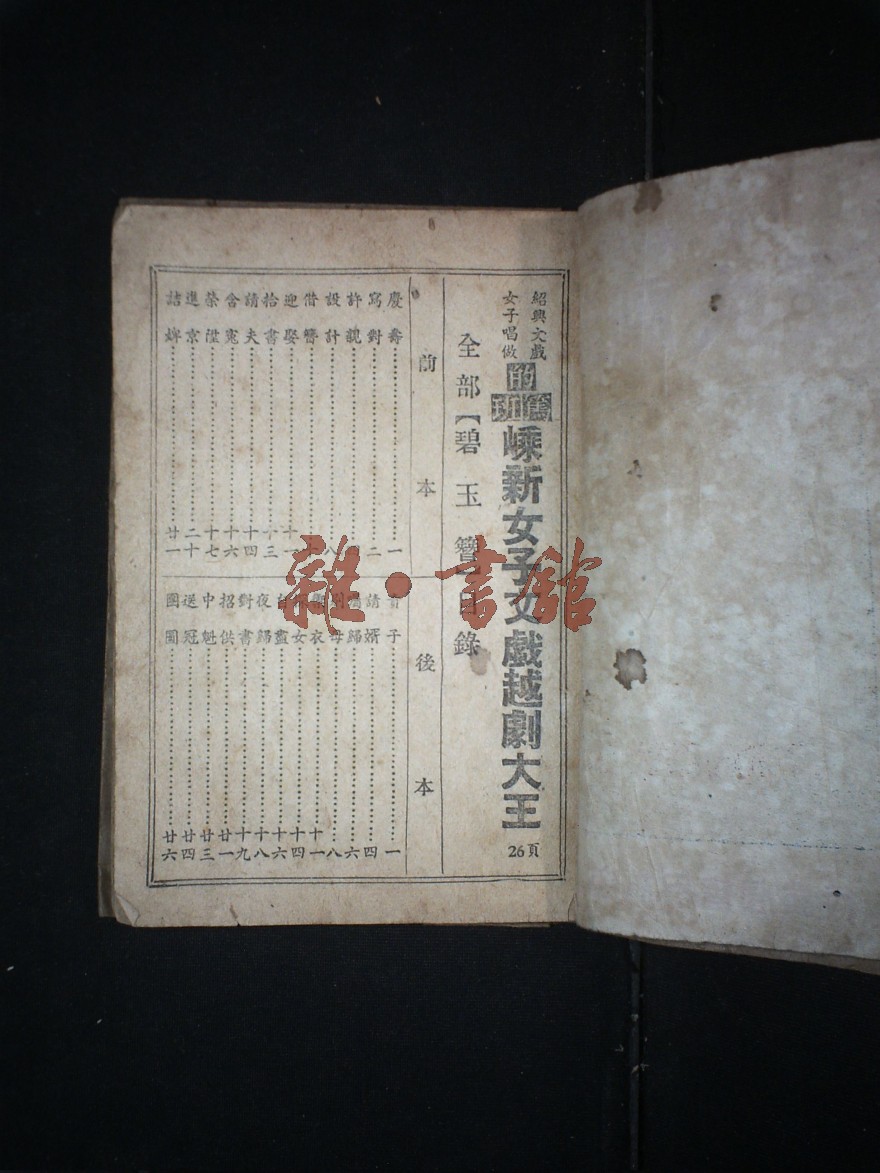 紹興文戲
女子唱做
的篤班
嵊新女子文戲越劇大王
26頁
全部【碧玉簪】目錄
前本
慶壽 一
寫對 二
許親
設計 八
借簪
迎娶 十一
拾書 十三
請夫 十四
含寃 十六
榮陞 十七
進京 二十
詰婢 廿一
後本
子 一
請婿 四
歸 六
母 八
衣 十一
女 十四
盡 十六
夜歸 十八
對書 十九
招供 廿一
中魁 廿三
送冠 廿四
團圓 廿六
雜·書館